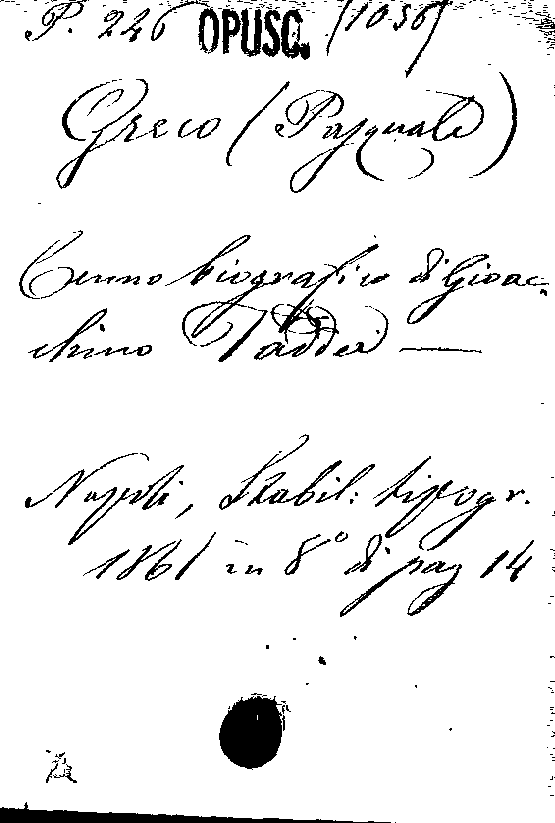 P. 226 OPUSC. (1036)
Greco (Pasquale)
Cenno biografico di Gioac-
chino Taddei —
Napoli, Stabil: tipogr.
1861 in 8° di pag 14